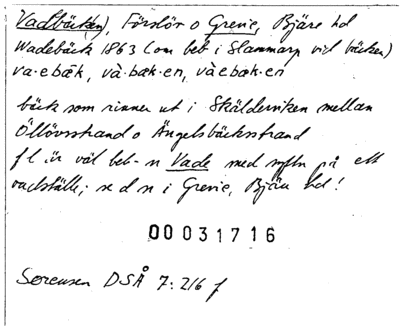 Vadbäcken), Förslöv o Grevie, Bjäre hd
Wadebäck 1863 (om beb i Slammarp vid bäcken)
va·ebæk, và·bæk·en, vàebæk·en
bäck som rinner ut i Skälderviken mellan
Öllövsstrand o Ängelsbäcksstrand
f l är väl beb-n Vade med syftn på ett
vadställe; se d n i Grevie, Bjäre hd!
00031716
Sørensen DSÅ 7:216 f